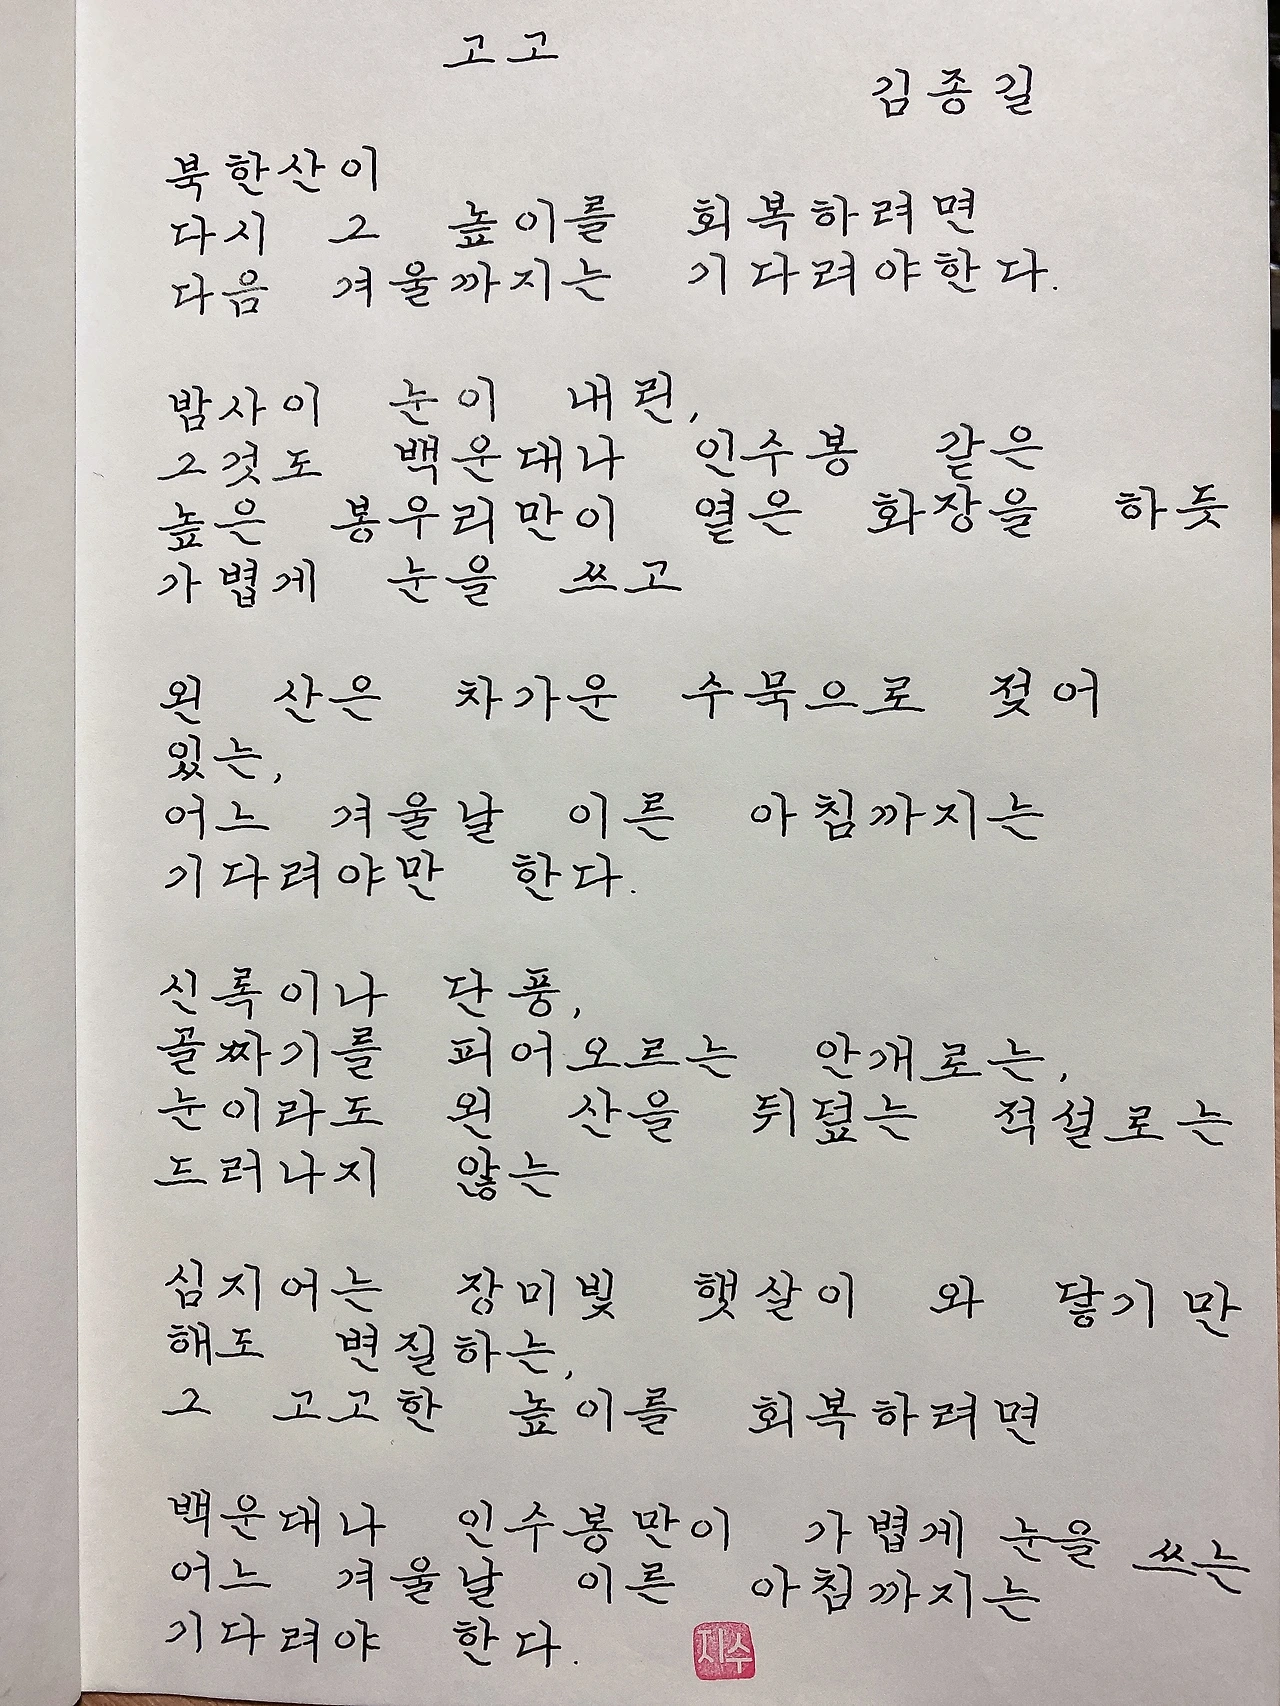 고고
김종길
북한산이
다시 그 높이를 회복하려면
다음 겨울까지는 기다려야한다.
밤사이 눈이 내린,
그것도 백운대나 인수봉 같은
높은 봉우리만이 옅은 화장을 하듯
가볍게 눈을 쓰고
왼 산은 차가운 수묵으로 젖어
있는,
어느 겨울날 이른 아침까지는
기다려야만 한다.
신록이나 단풍,
골짜기를 피어오르는 안개로는,
눈이라도 왼 산을 뒤덮는 적설로는
드러나지 않는
심지어는 장미빛 햇살이 와 닿기만
해도 변질하는,
그 고고한 높이를 회복하려면
백운대나 인수봉만이 가볍게 눈을 쓰는
어느 겨울날 이른 아침까지는
기다려야 한다.
지수